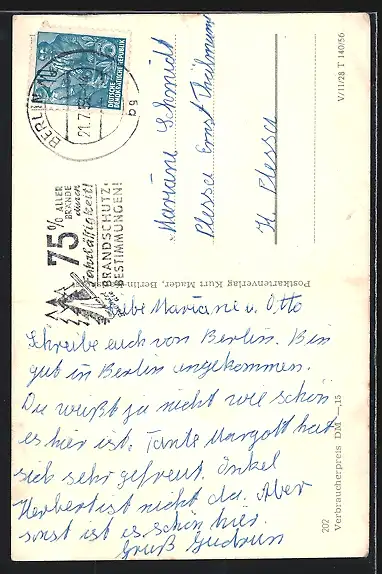 Mariane Schmidt
Plessa Ernst Thälmann
Kr. Plessa
BERLIN
21.7.5
DEUTSCHE
DEMOKRATISCHE REPUBLIK
75% ALLER
BRÄNDE
durch
Fahrlässigkeit!
BRANDSCHUTZ-
BESTIMMUNGEN!
V/11/28 T 140/56
Postkartenverlag Kurt Mader, Berlin-
Liebe Mariane u. Otto
Schreibe euch von Berlin. Bin
gut in Berlin angekommen.
Du weißt ja nicht wie schön
es hier ist. Tante Margott hat
sich sehr gefreut. Onkel
Herbert ist nicht da. Aber
sonst ist es schön hier.
Gruß Gudrun
202
Verbraucherpreis DM —,15